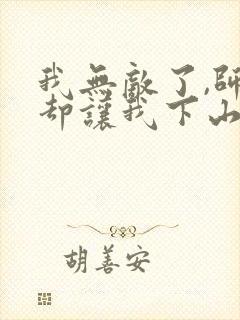 我無敵了,師
却讓我下山
胡善安